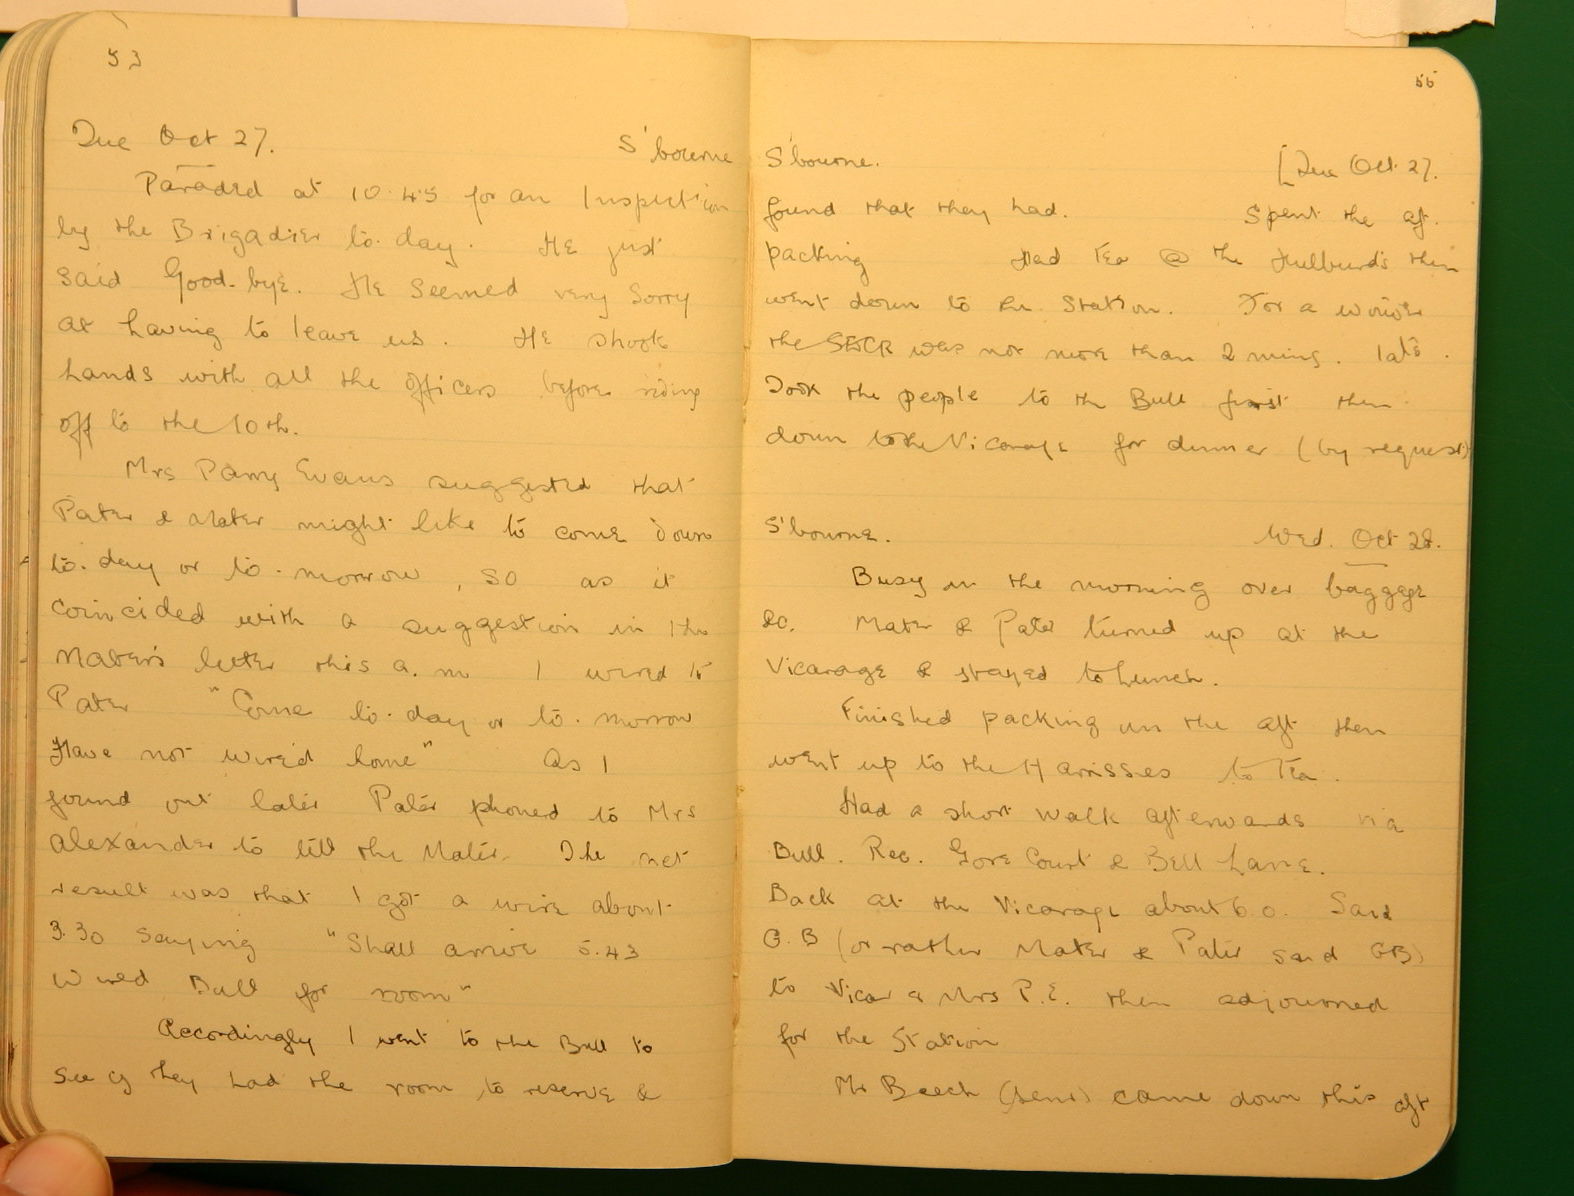 53
Tue Oct 27. S'bourne
Paraded at 10.45 for an Inspection
by the Brigadier to-day. He just
said Good-bye. He seemed very sorry
at having to leave us. He shook
hands with all the officers before riding
off to the 10th.
Mrs Parry Evans suggested that
Pater & Mater might like to come down
to-day or to-morrow, so as it
coincided with a suggestion in the
Mater's letter this a.m I wired to
Pater "Come to-day or to-morrow
Have not wired home" As I
found out later Pater phoned to Mrs
Alexander to tell the Mater. The net
result was that I got a wire about
3.30 saying "Shall arrive 5.43
Wired Bull for room"
Accordingly I went to the Bull to
see if they had the room to reserve &
55
S'bourne. [Tue Oct. 27.
found that they had. Spent the aft.
packing Had tea @ the Hulburd's then
went down to the Station. For a wonder
the SECR was not more than 2 mins. late.
Took the people to the Bull first then
down to the Vicarage for dinner (by request)
S'bourne. Wed. Oct 28.
Busy in the morning over baggage
&c. Mater & Pater turned up at the
Vicarage & stayed to lunch.
Finished packing in the aft then
went up to the Harrisses to Tea.
Had a short walk afterwards via
Bull. Rec. Gore Court & Bell Lane.
Back at the Vicarage about 6.0. Said
G.B (or rather Mater & Pater said GB)
to Vicar & Mrs P.E. then adjourned
for the Station
Mr Beech (senr) came down this aft